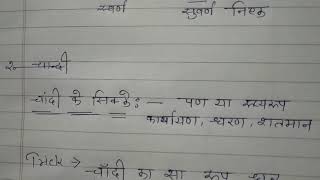 स्वर्ण सुवर्ण निष्क
२. चान्दी
चांदी के सिक्के: — पण या रूप्यरूप
कार्षापण, धरण, शतमान
चाँदी का सा रूप